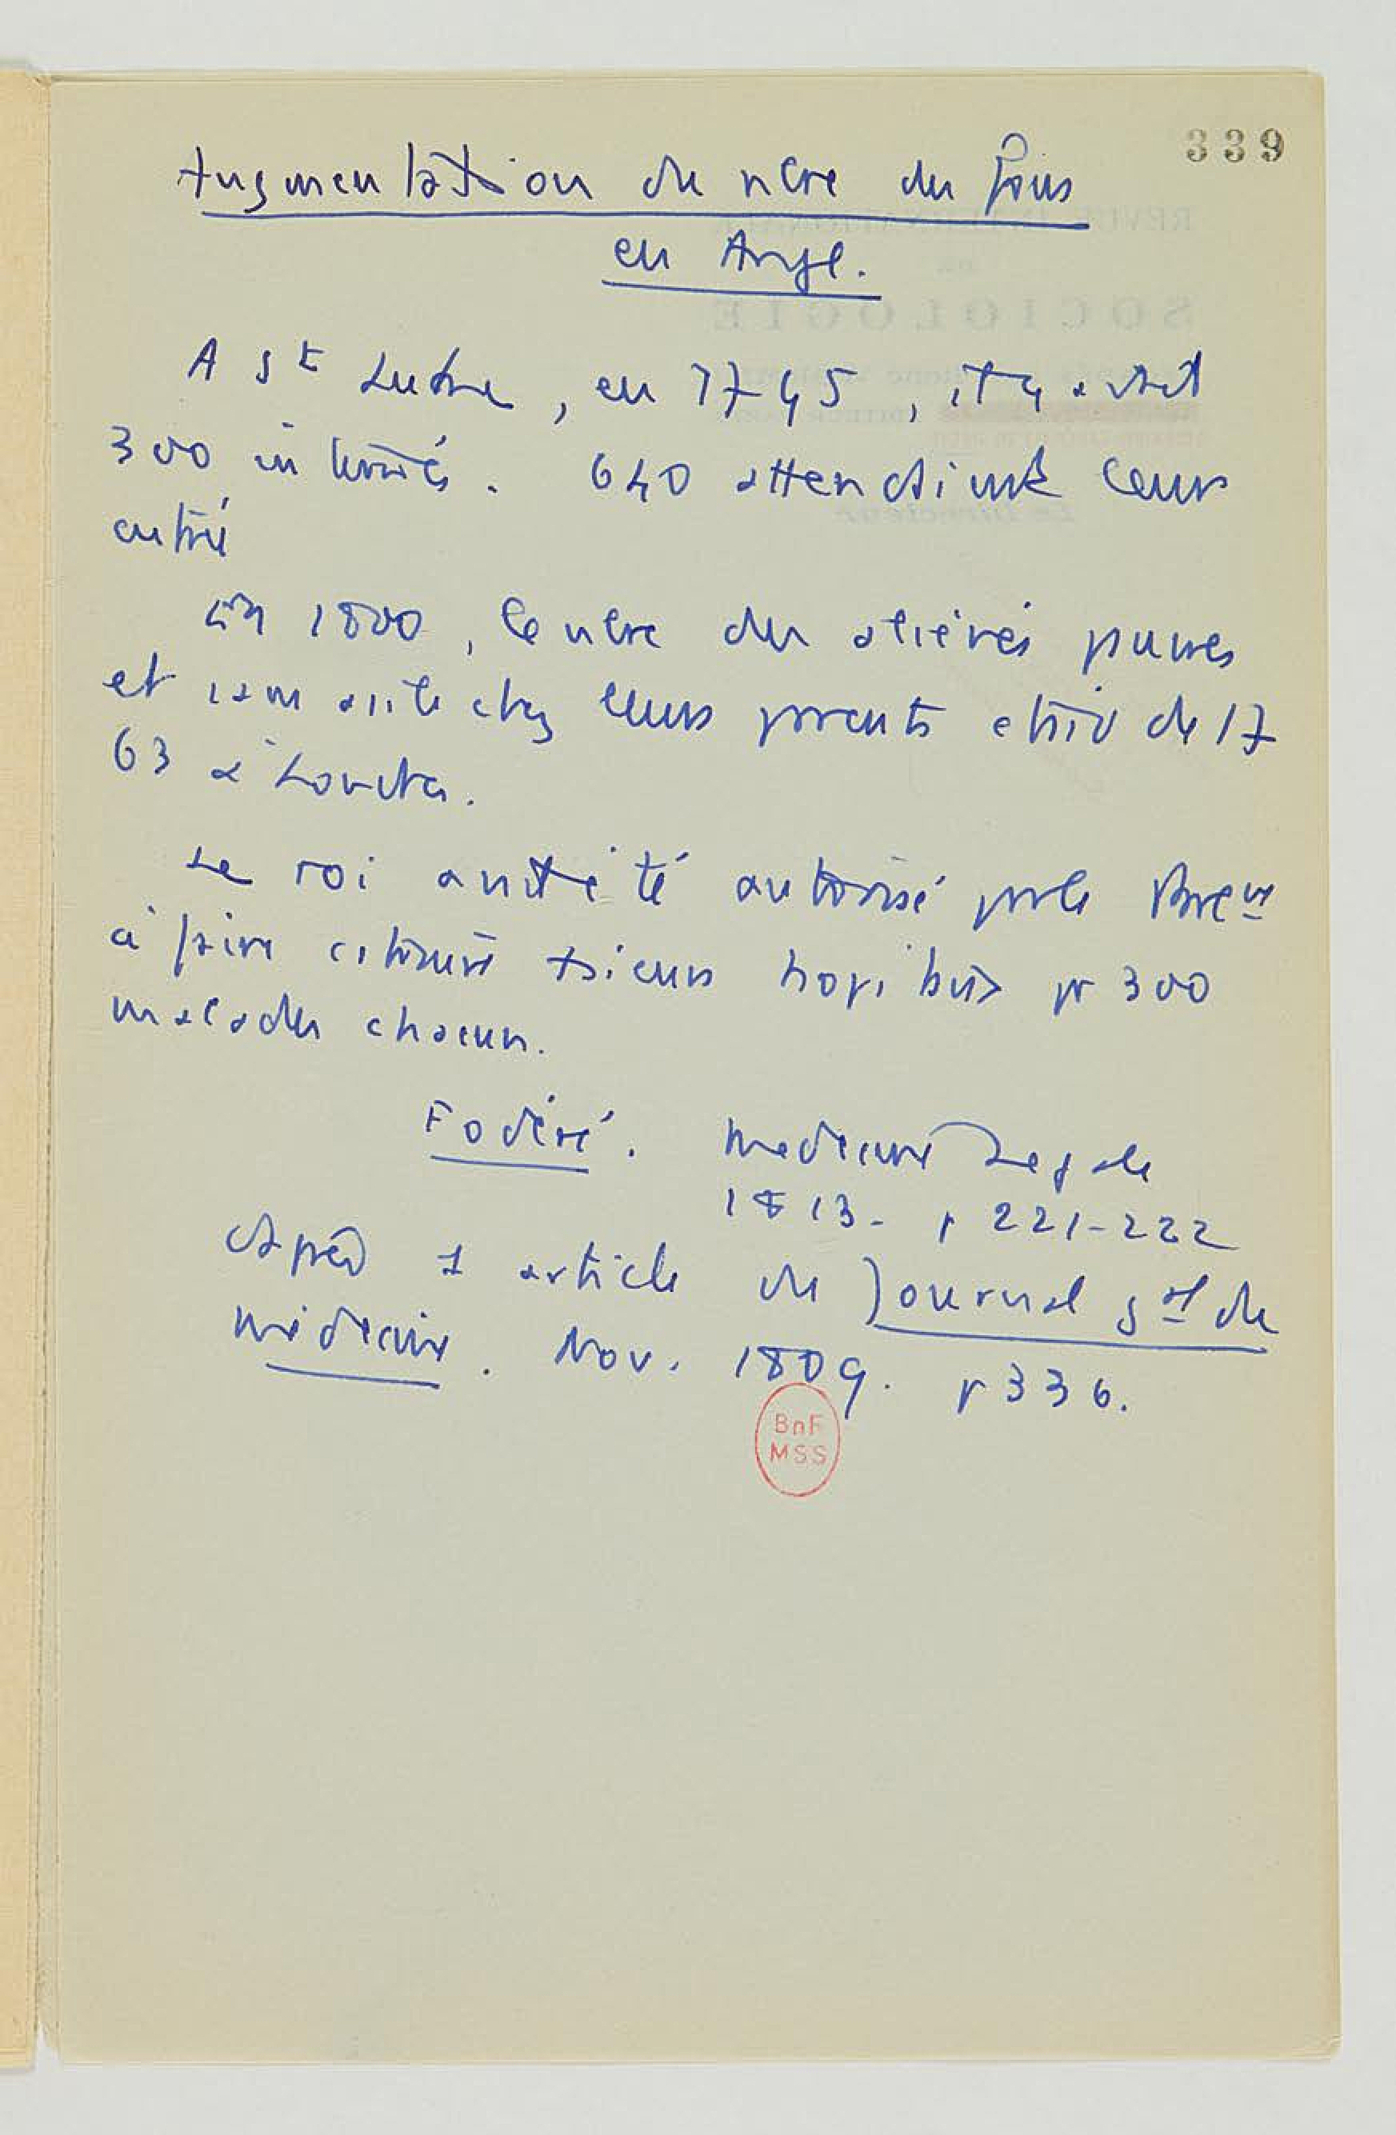 339
Augmentation du nbre des fous
en Angl.
A St Luke, en 1745, il y avait
300 internés. 640 attendaient leur
entrée
En 1800, le nbre des aliénés pauvres
et sans asile chez leurs parents était de 17
63 à Londres.
Le roi avait été autorisé par le
à faire construire hôpitaux pr 300
malades chacun.
Fodéré. Médecine Légale
1813. p 221-222
d'après 1 article du Journal gal de
médecine. Nov. 1809. p 336.
BnF
MSS
REVUE INTERNATIONALE
DE
SOCIOLOGIE
Le Directeur